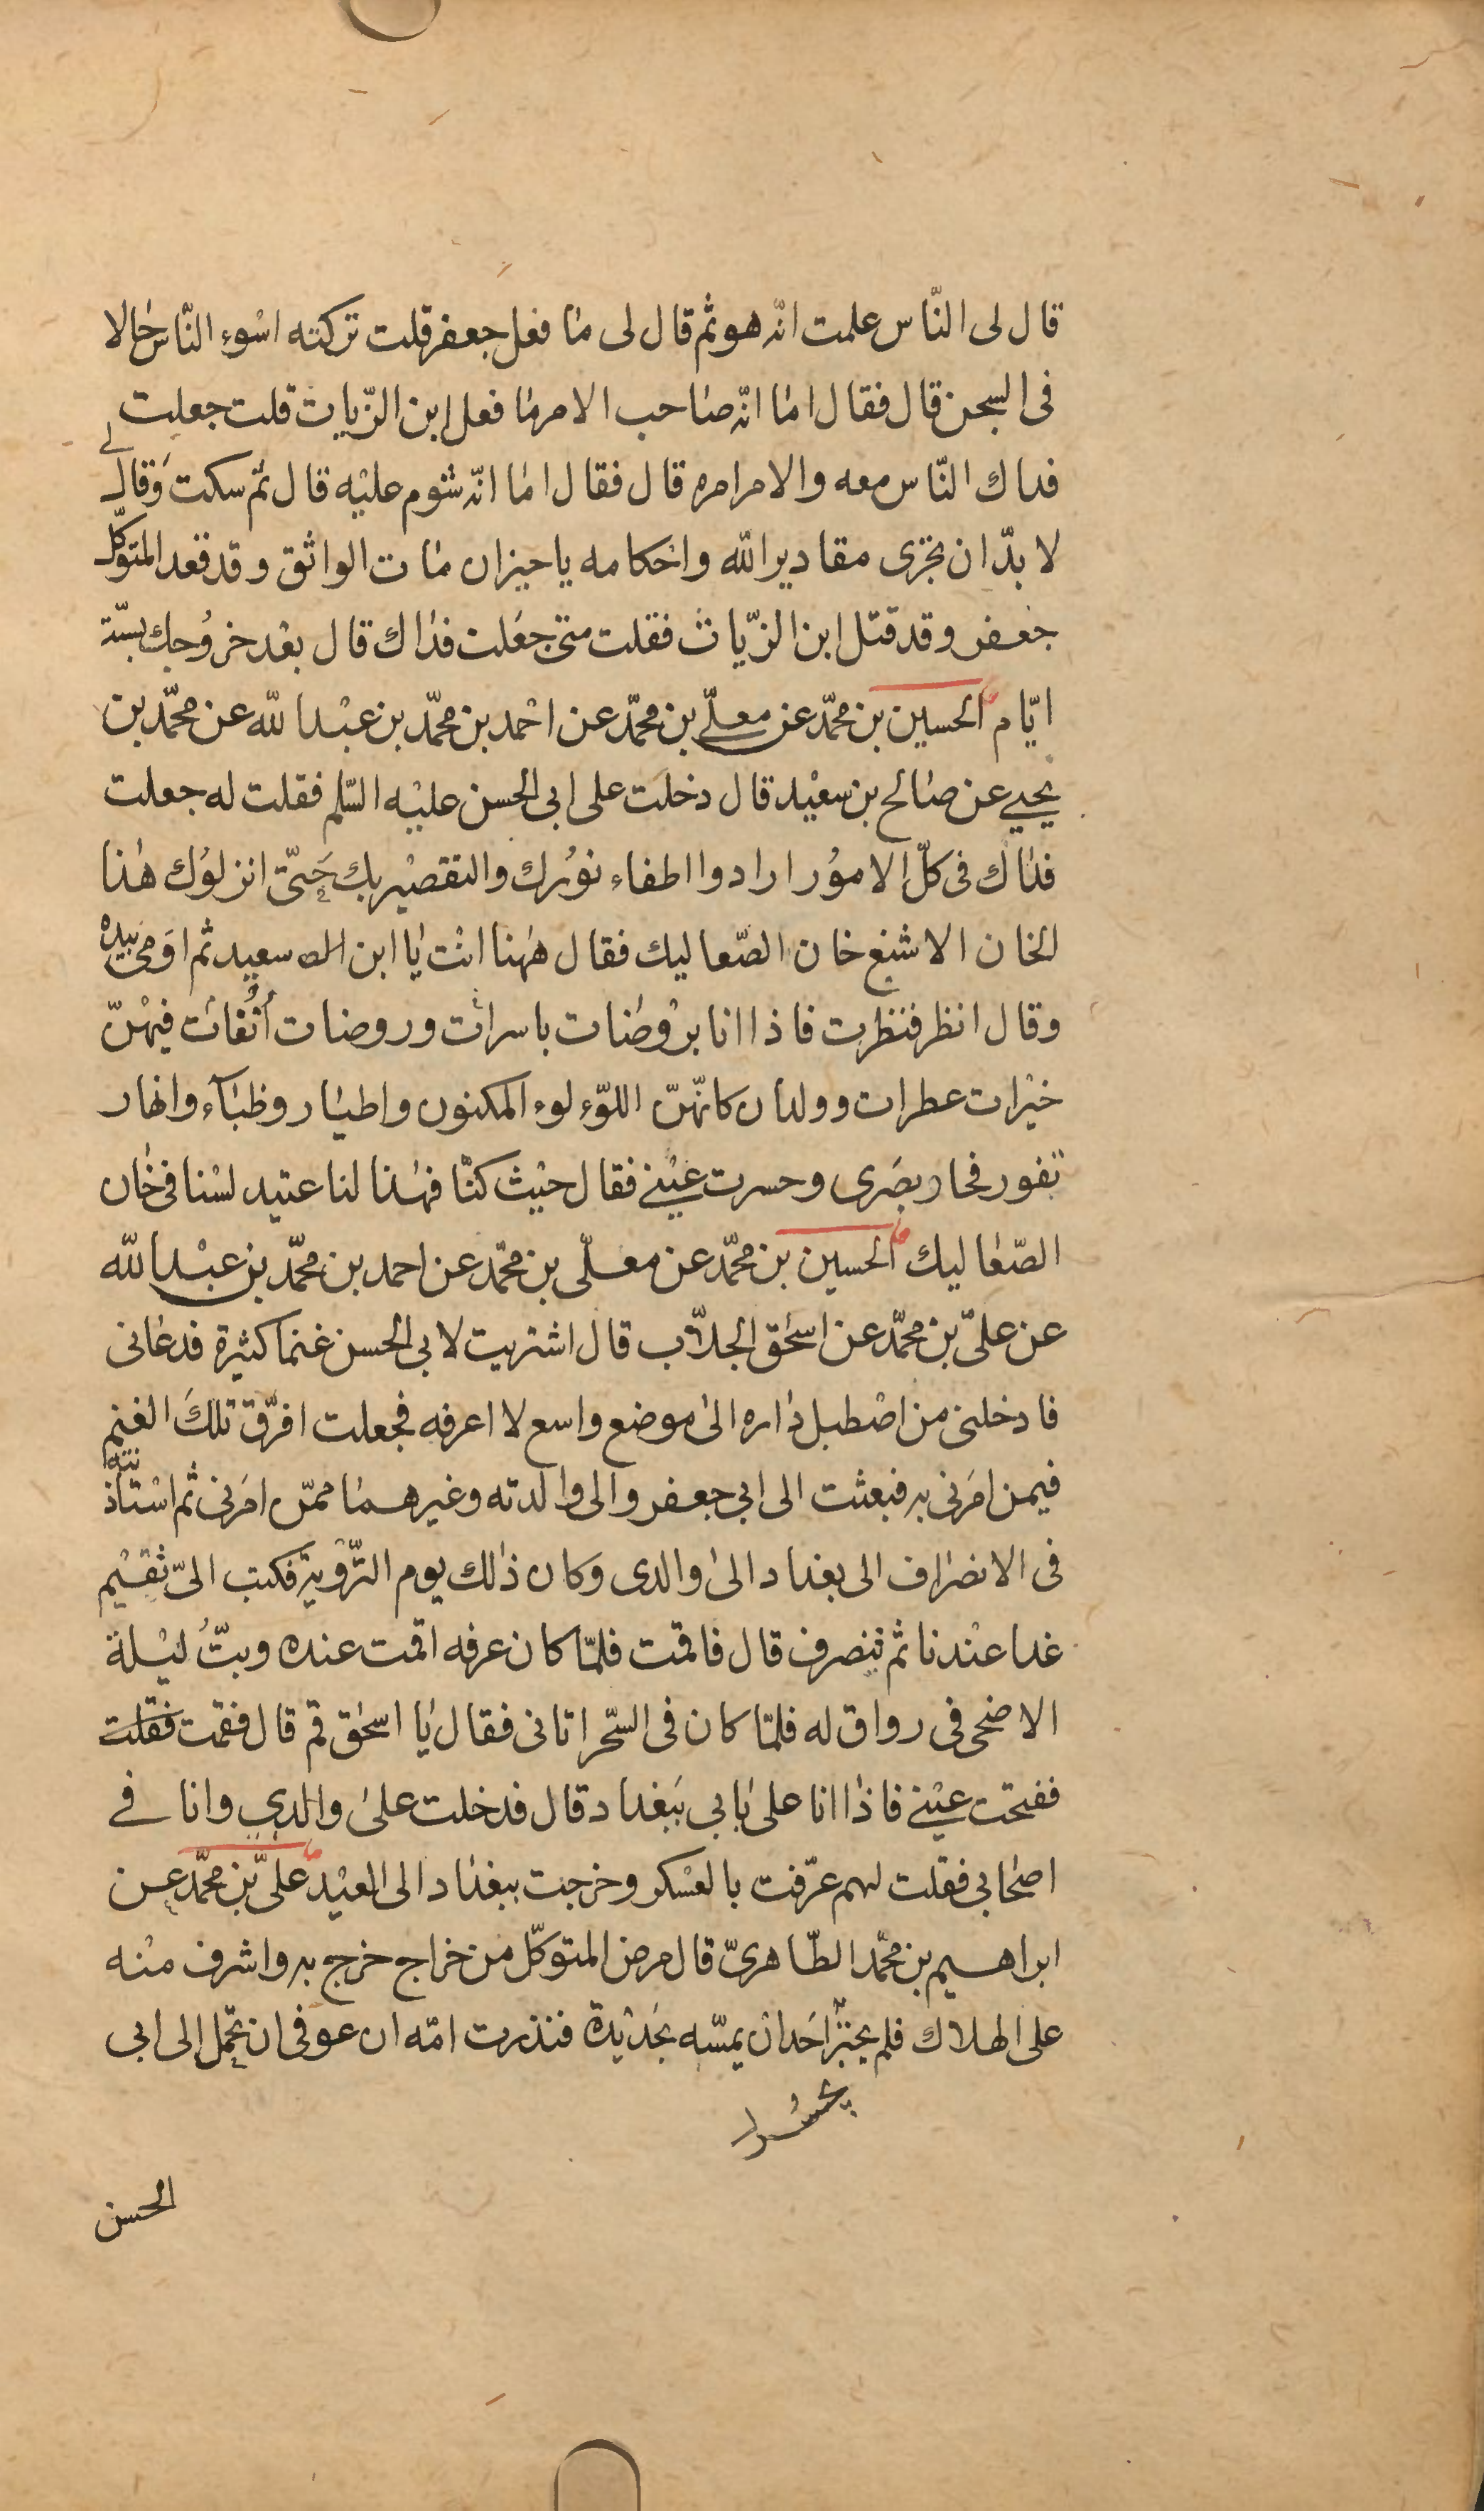 قال لى النّاس علمت انّه هو ثم قال لى ما فعل جعفر قلت تركته اسْوء النّاس حالا
فى السجن قال فقال اما انّه صاحب الامر ما فعل ابن الزّيات قلت جعلت
فداك النّاس معه والامر امره قال فقال اما انّه شوم عليْه قال ثمّ سكت وَقال لے
لا بدّ ان تجرى مقادير الله واحكامه يا خيران مات الواثق وقد قعد المتوكّل
جعفر وقد قتل ابن الزّيات فقلت متى جعَلت فداك قال بعْد خروُجك بستّة
ايّام الحسين بن محمّد عن معلّے بن محمّد عن احْمد بن محمّد بن عبْد الله عن محمّد بن
يحيے عن صالح بن سعيْد قال دخلت على ابى الحسن عليْه السّلم فقلت له جعلت
فداك فى كلّ الامؤر ارادوا اطفاء نوُرك والتقصيْر بك حَتّى انزلوُك هٰذا
الخان الاشنع خان الصّعاليك فقال هٰهنا انْت يٰا ابن سعيد ثم اوَمى بيده
وقال انظر فنظرت فاذا انا برْوضات باسرات وروضات أنُفات فيهْنّ
خيْرات عطرات وولدان كانّهنّ اللوّء لوء المكنون واطيار وظبآء وانهار
تفور فحار بصَرى وحسرت عيْنے فقال حيْث كنّا فهٰذا لنا عتيد لسْنا فى خٰان
الصّعاليك الحسين بن محمّد عن معلّى بن محمّد عن احمد بن محمّد بن عبْد الله
عن علىّ بن محمّد عن اسحٰق الجلاّب قال اشتريت لابى الحسن غنما كثيْرة فدعٰانى
فادخلنى من اصْطبل دٰاره الىٰ موضع واسع لا اعرفه فجعلت افرّق تلكَ الغنم
فيمن امَرنى به فبعثت الى ابى جعفر والى وٰالدته وغيرهمٰا ممّن امَرنى ثم اسْتأذنته
فى الانصرٰاف الى بغداد الىٰ والدى وكان ذٰلك يوم التّرْوية فكتب الىّ تقيْم
غدا عنْدنا ثم تنصرف قال فاقمت فلمّا كان عرفه اقمت عنده وبتّ ليْلة
الاضحى فى رواق له فلمّا كان فى السّحر اتانى فقال يٰا اسحٰق قم قال فقمت فقلت
ففتحت عيْنے فاذا انا علىٰ بٰابي ببَغداد قال فدخلت علىٰ والدي وانا في
اصْحابي فقلت لهم عرّفت بالعسْكر وخرجت ببغداد الى العيْد علىّ بن محمّد عن
ابراهيم بن محمّد الطّاهرىّ قال مرض المتوكّل من خراج خرج به واشرف منْه
على الهلاك فلم يجتز احَد ان يمسّه بحَديْدة فنذرت امّه ان عوفى ان تحمل الى ابى
الحسن